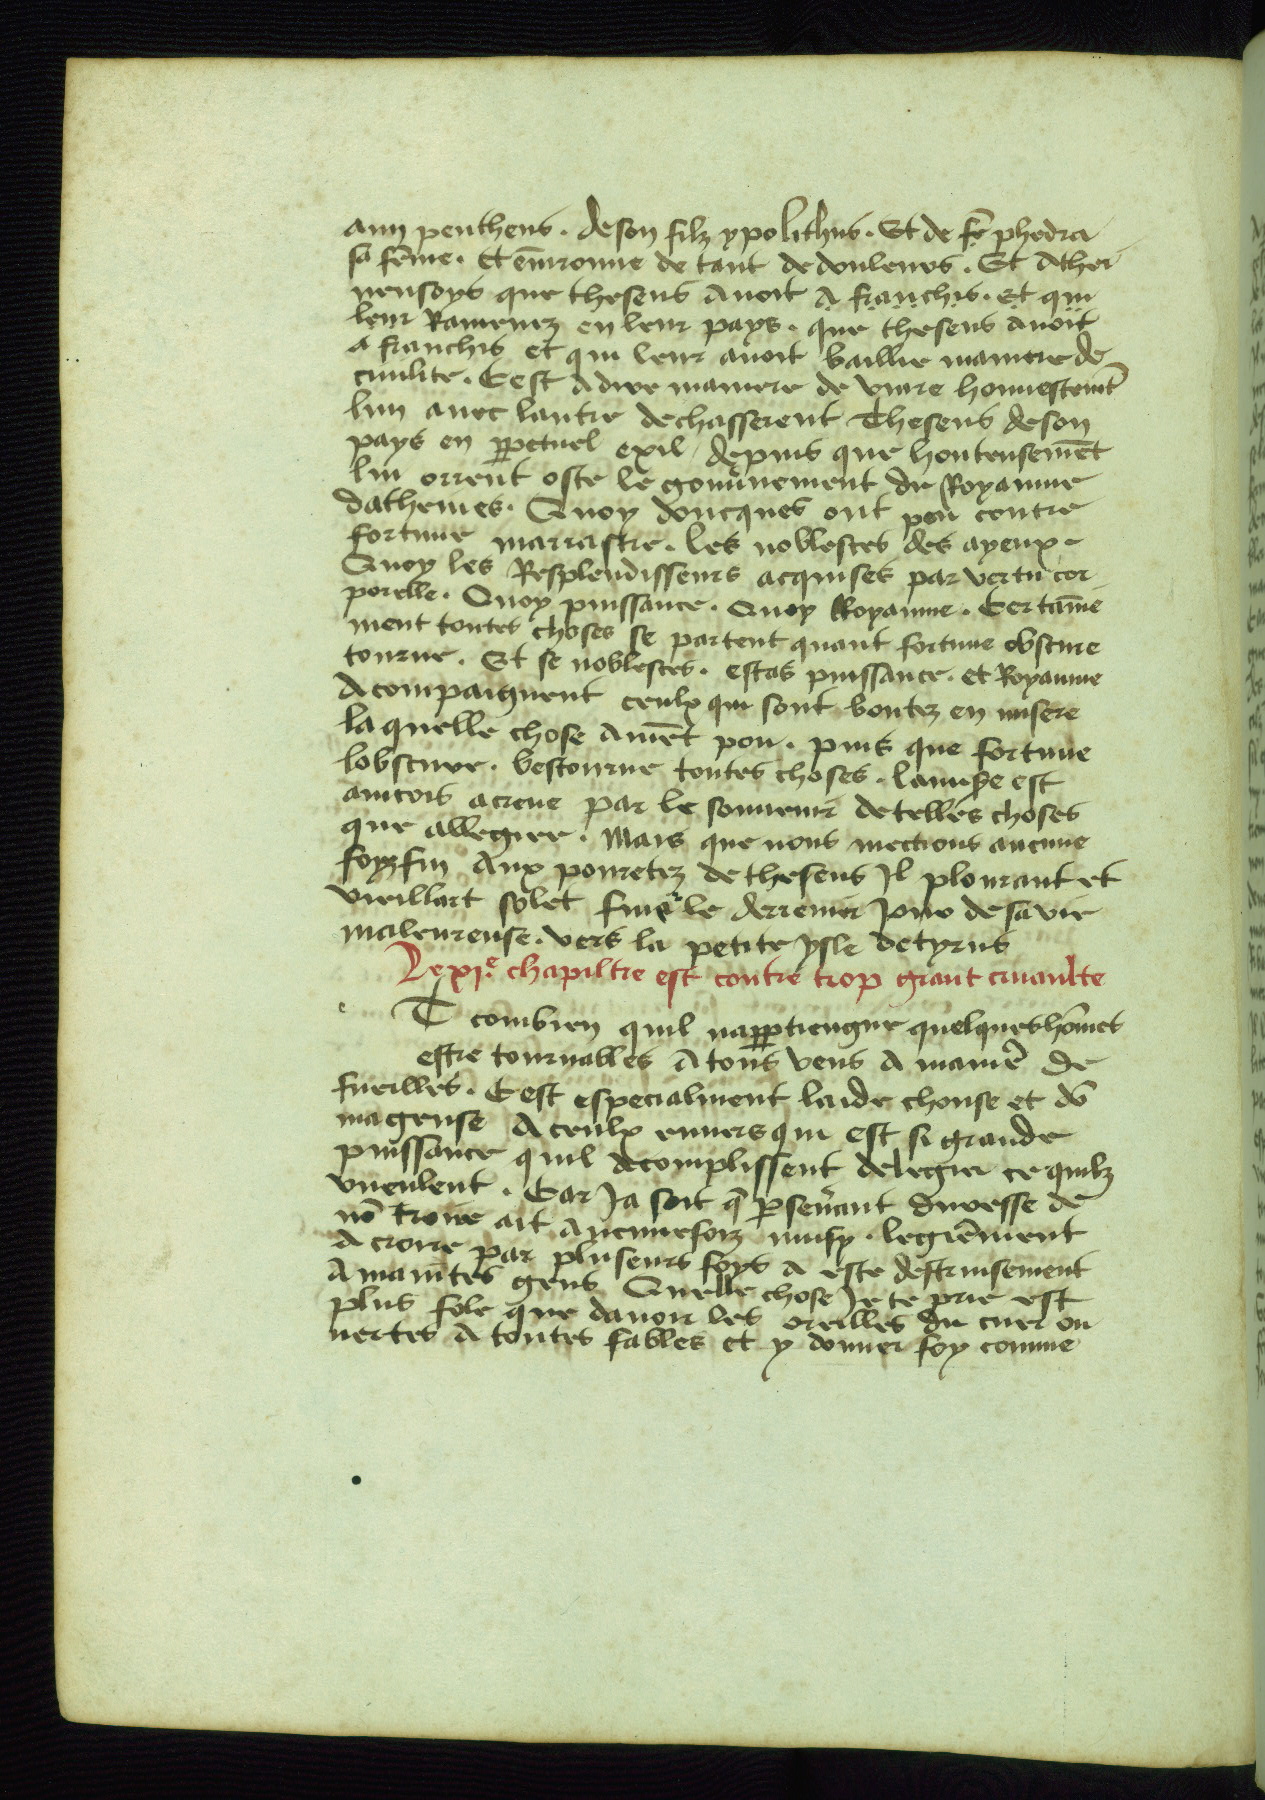 amy peutheus . de son filz ypolithus . Et de fe phedra
sa fēme . Et ēuironne de tant de douleurs . Et Athei
nensoys que theseus Auoit A franchis . et qui
leur Ramenez en leur pays . que theseus auoit
a franchis et qui leur auoit baillie maniere de
ciuilite . Cest A dire maniere de viure honnestemēt
lun auec lautre dechasserent Theseus de son
pays en ꝑpetuel exil depuis que honteusemēt
lui orrent oste le gouũnement du Royaume
dathenies . Quoy doncques ont peu contre
fortune marrastre . les noblesces des ayeux -
Quoy les Resplendisseurs acquises par vertu cor
porelle . Quoy puissance . Quoy Royaume . Certaīne
ment toutes choses se partent quant fortune obscure
tourne . Et se noblesces . estas puissance . et Royaume
Acompaignent ceulx qui sont boutez en misere
la quelle chose Auiēt pou . puis que fortune
lobscure . bestourne toutes choses . la misere est
aincois acreue par le souuenir de telles choses
que allegiee . Mais que nous mections aucune
foyz fin Aux pouretez de theseus Il plourant et
vieillart solet finist le derrenier Jour de sa vie
maleureuse . vers la petite ysle de tyrus
Le xi.e chapiltre est contre trop grant cruaulte
e T combien quil naꝑꝑtiengne quelques hōmes
estre tournables A tous vens A manie̅ de
fueilles . Cest especialment laide chouse et dō
mageuse A ceulx enuers qui est si grande
puissance quil Acomplissent de legier ce quilz
vueulent . Car Ja soit q̄ ꝑseũant duresse de
nō croire ait Aucuneffoiz nuisy . legieremēnt
A croire par pluseurs foys A este destruisement
A maintes gens Quelle chose Je te prie est
plus fole que dauoir les oreilles du cuer ou
uertes A toutes fables et y donner foy comme